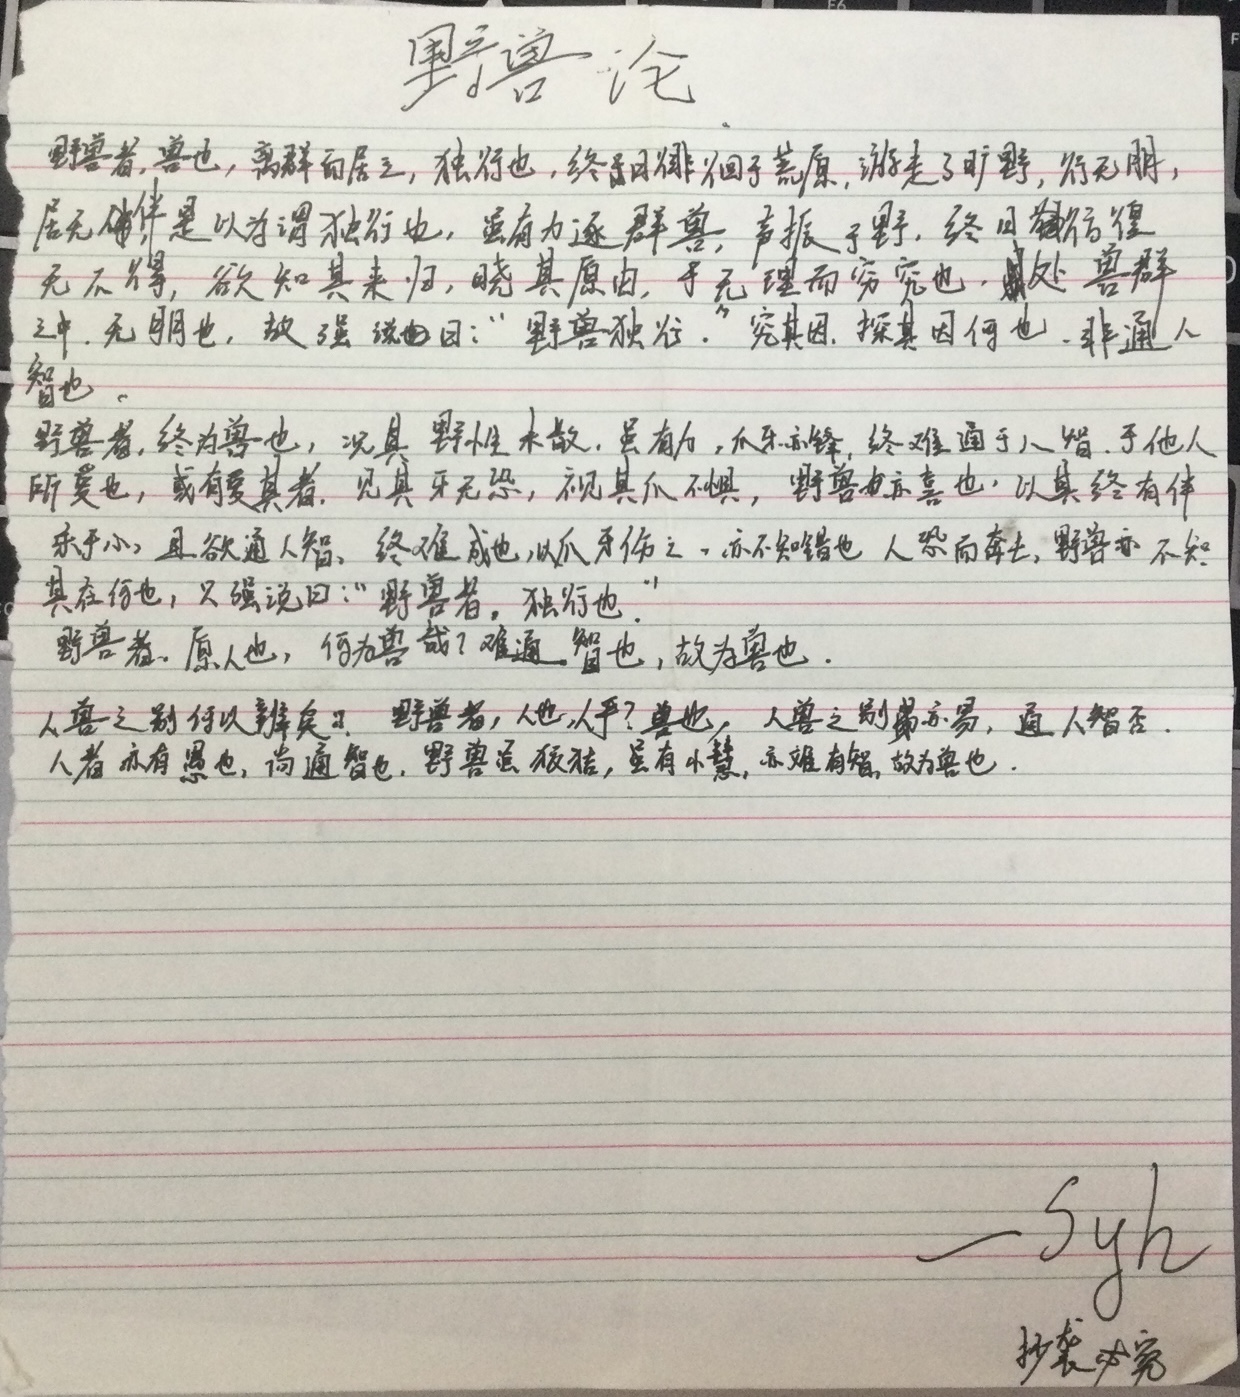 野兽论
野兽者,兽也,离群而居之,独行也,终日徘徊于荒原,游走于旷野,行无朋,
居无伴是以为谓独行也,虽有力逐群兽,声振于野,终日彷徨
无不得,欲知其来归,晓其原由,于无理而穷究也,处兽群
之中,无朋也,故强说曰:“野兽独行.”究其因,探其因何也,非通人
智也。
野兽者,终为兽也,况其野性未散,虽有力,爪牙亦锋,终难通于人智,于他人
所爱也,或有爱其者,见其牙无恐,视其爪不惧,野兽亦喜也,以其终有伴
乐于心,且欲通人智,终难成也,以爪牙伤之,亦不知错也 人恐而奔去,野兽亦不知
其在何也,只强说曰:“野兽者,独行也.”
野兽者,原人也,何为兽哉?难通智也,故为兽也.
人兽之别何以辨矣? 野兽者,人也,人乎?兽也,人兽之别亦易,通人智否.
人者亦有愚也,尚通智也,野兽虽狡猾,虽有小慧,亦难有智,故为兽也.
—Syh
抄袭必究